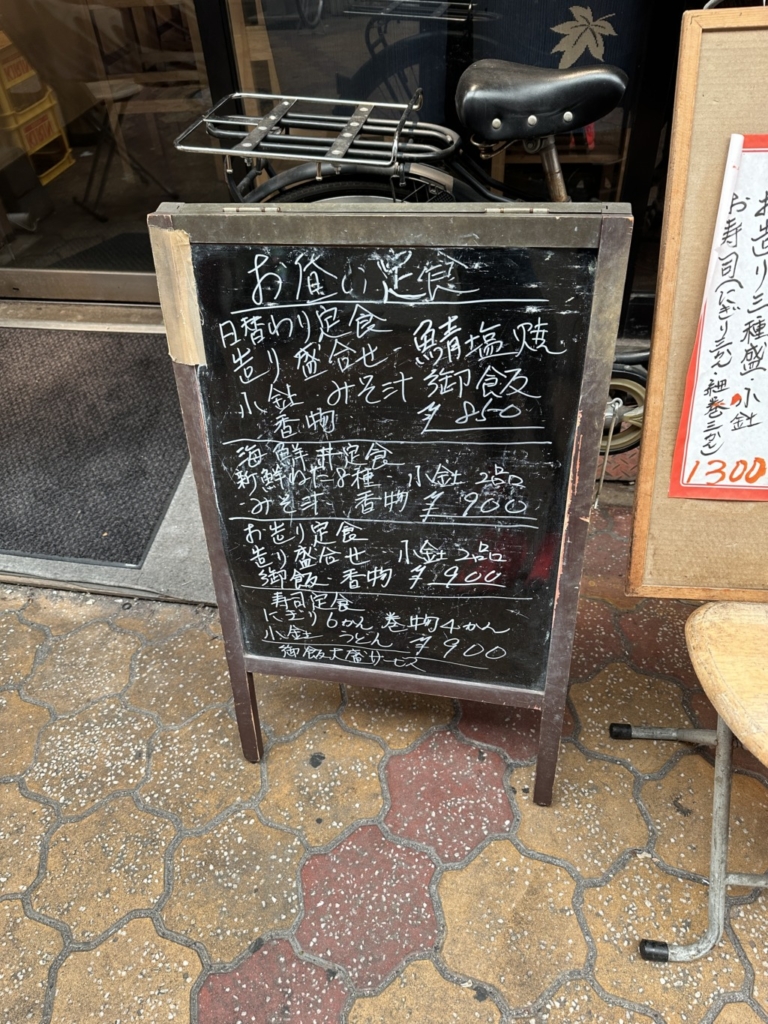 お昼の定食
日替わり定食
造り盛合せ 鯖塩焼
小鉢 みそ汁 御飯
香物 ¥850
海鮮丼定食
新鮮ねた8種 小鉢2品
みそ汁 香物 ¥900
お造り定食
造り盛合せ 小鉢2品
御飯 香物 ¥900
寿司定食
にぎり6かん 巻物4かん
小鉢 うどん ¥900
御飯大盛サービス
お造り三種盛・小鉢
お寿司(にぎり三かん・細巻三かん)
1300